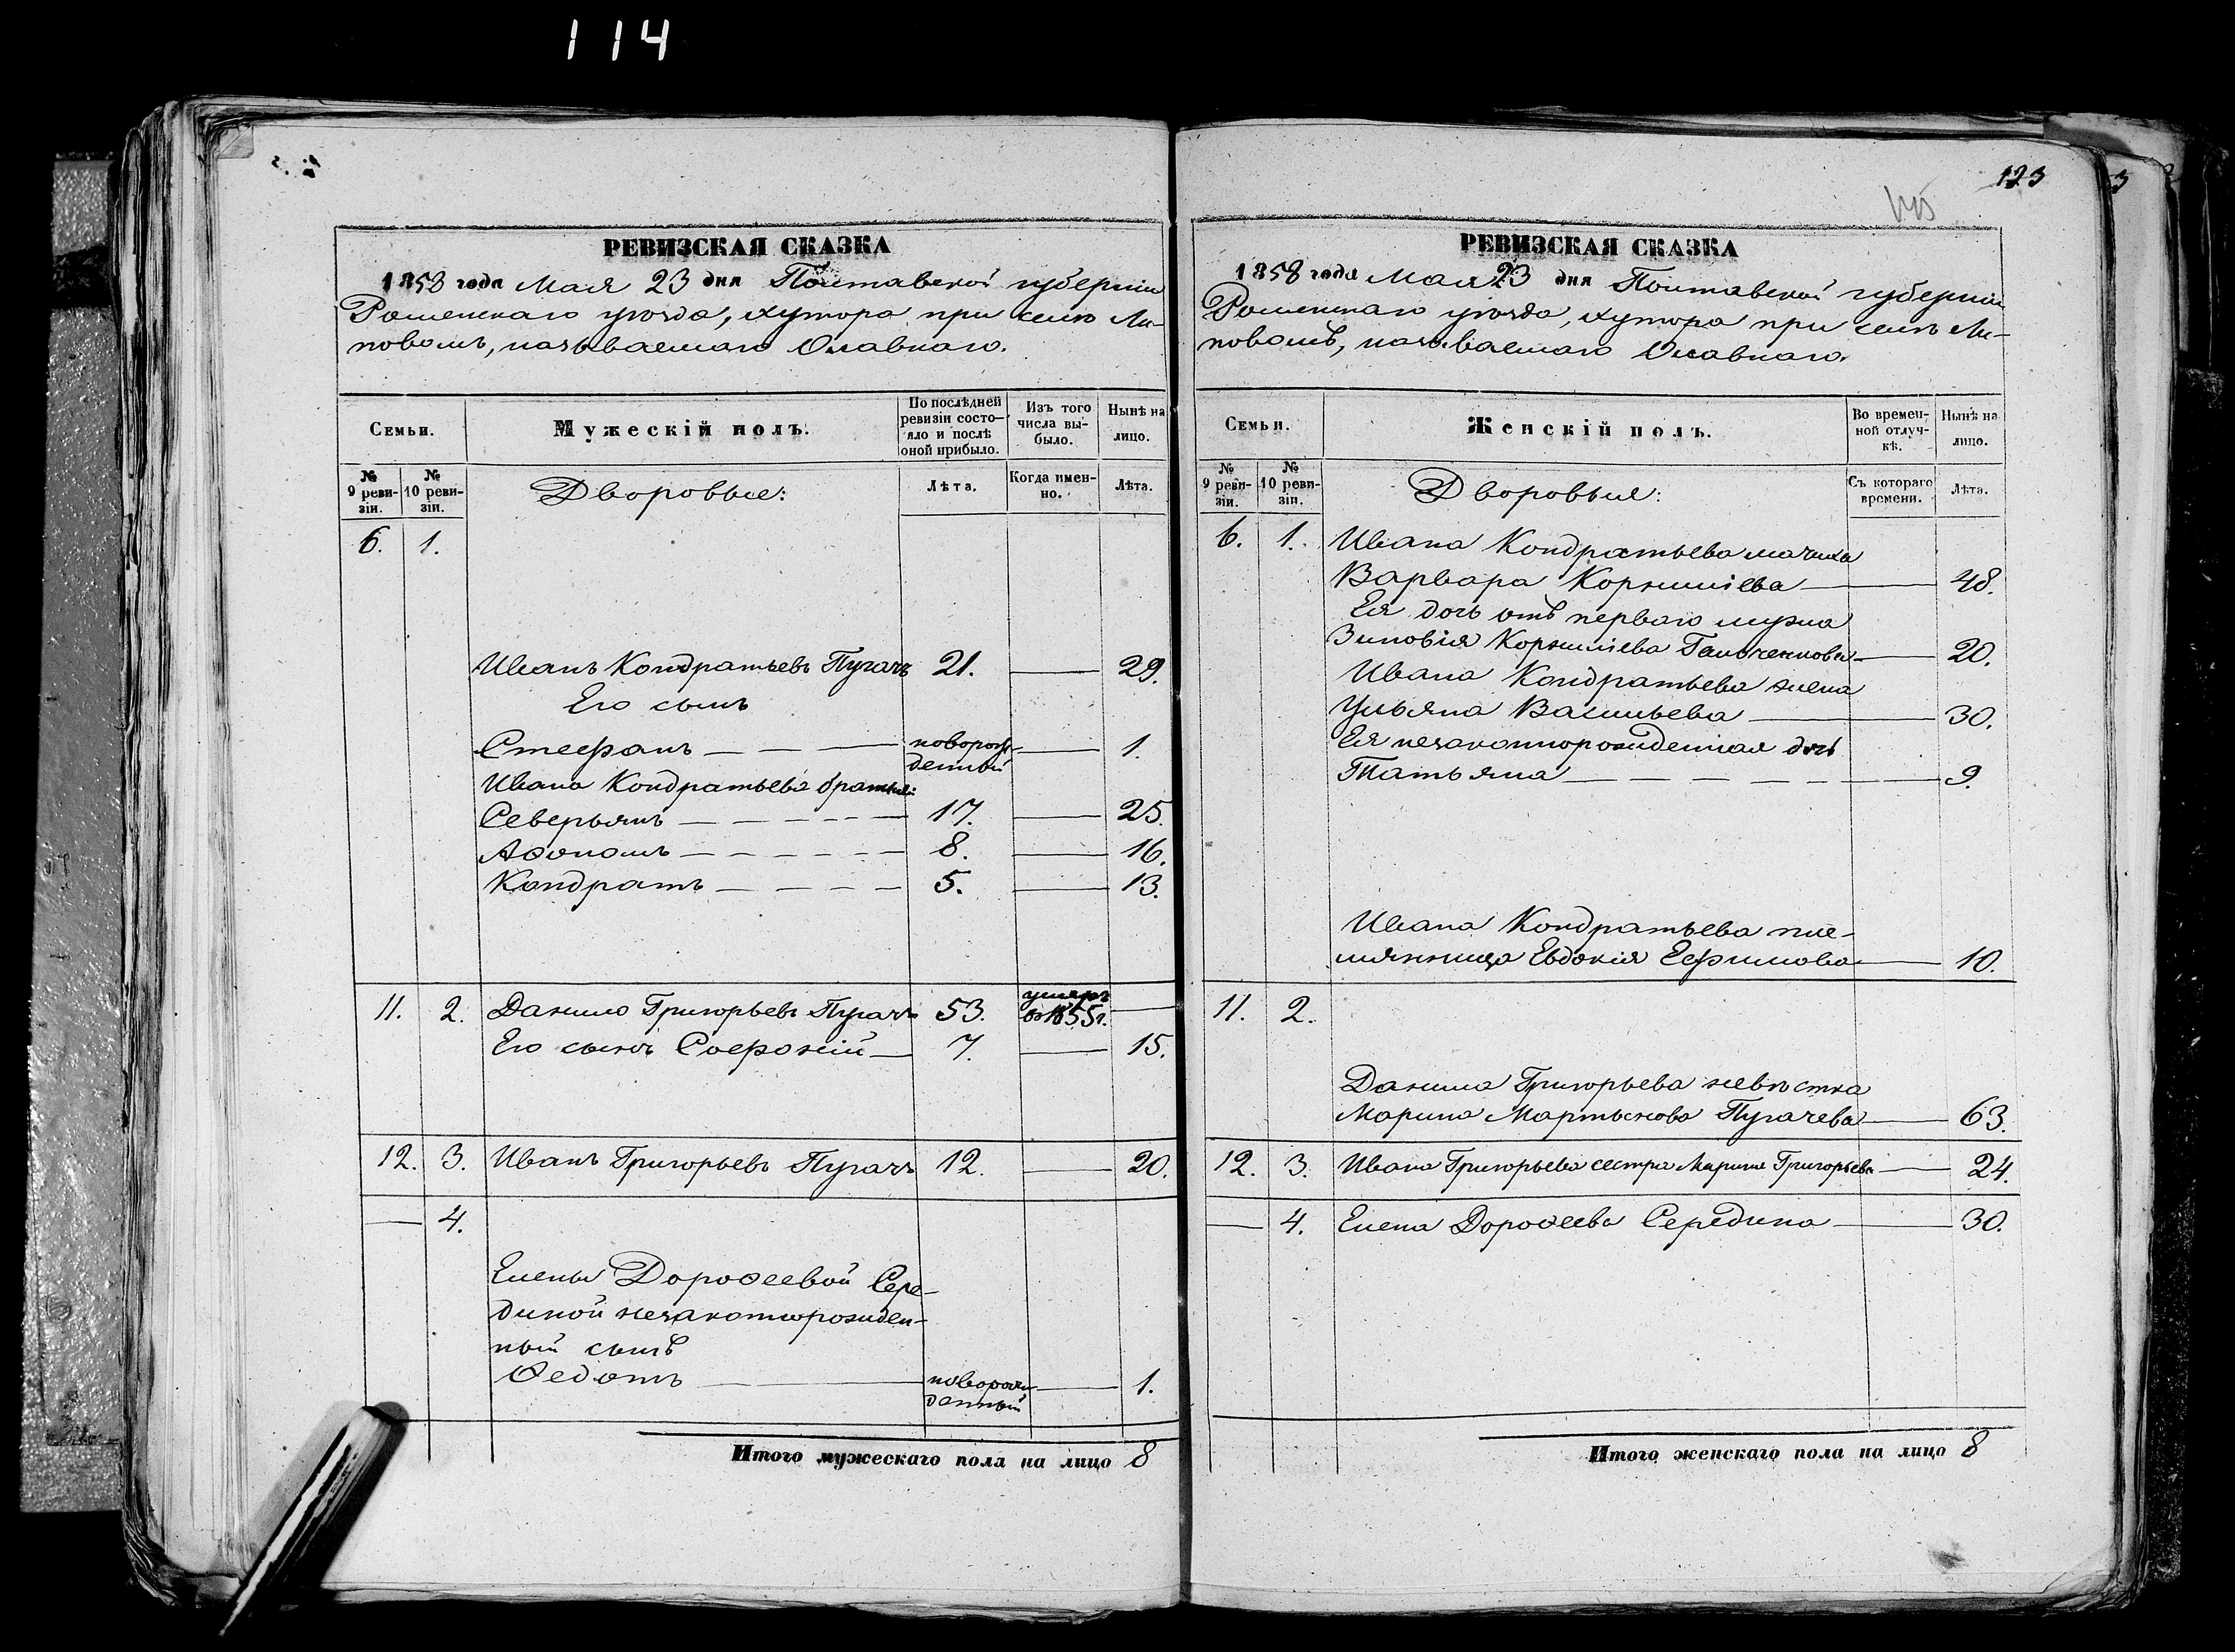 114
РЕВИЗСКАЯ СКАЗКА
1858 года Мая 23 дня Полтавской губернии
Роменскаго уѣзда, хутора при селѣ Ли-
повомъ, называемаго
Семьи.
Мужескій полъ.
По послѣдней ревизіи состо-
яло и послѣ оной прибыло.
Изъ того числа вы-
было.
Нынѣ на лицо.
№ 9 реви-
зіи.
№ 10 реви-
зіи.
Дворовые:
Лѣта.
Когда имен-
но.
Лѣта.
6. 1.
Иванъ Кондратьевъ Пугачъ 21. — 29.
Его сынъ
Стефанъ — новорож-
денный — 1.
Ивана Кондратьева братья:
Северьянъ — 17. — 25.
Афономъ — 8. — 16.
Кондратъ — 5. — 13.
11. 2. Данило Григорьевъ Пугачъ 53. умеръ
въ 1855 г. —
Его сынъ Софроній — 7. — 15.
12. 3. Иванъ Григорьевъ Пугачъ 12. — 20.
— 4.
Елены Дороѳеевой Сере-
диной незаконнорожден-
ный сынъ
Ѳедотъ — новорож-
денный — 1.
Итого мужескаго пола на лицо 8
123
РЕВИЗСКАЯ СКАЗКА
1858 года Мая 23 дня Полтавской губерніи
Роменскаго уѣзда, хутора при селѣ Ли-
повомъ, называемаго
Семьи.
Женскій полъ.
Во времен-
ной отлуч-
кѣ.
Нынѣ на лицо.
№ 9 реви-
зіи.
№ 10 реви-
зіи.
Дворовыя:
Съ котораго времени.
Лѣта.
6. 1. Ивана Кондратьева мачиха
Варвара Корниліева — 48.
Ея дочь отъ перваго мужа
Зиновія Корниліева — 20.
Ивана Кондратьева жена
Ульяна Васильева — 30.
Ея незаконнорожденная дочь
Татьяна — 9.
Ивана Кондратьева пле-
мянница Евдокія Ефимова — 10.
11. 2.
Данила Григорьева невѣстка
Марина Мартынова Пугачева — 63.
12. 3. Ивана Григорьева сестра Марина Григорьева — 24.
— 4. Елена Дороѳеева Середина — 30.
Итого женскаго пола на лицо 8